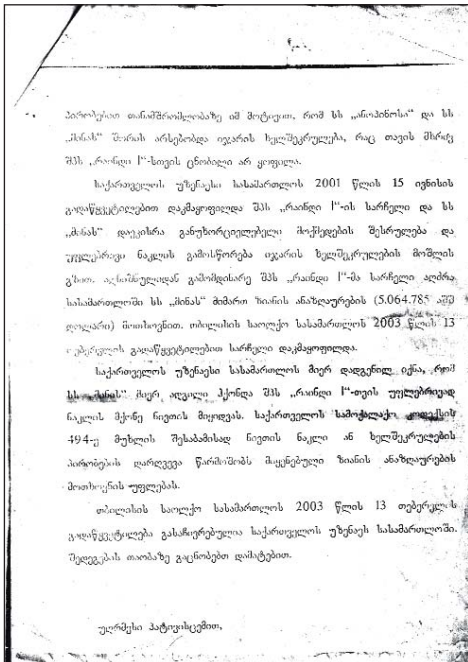 პირობებით თანამშრომლობაზე იმ მოტივით, რომ სს „ანოპინოსა“ და სს
„მინას“ შორის არსებობდა იჯარის ხელშეკრულება, რაც თავის მხრივ
შპს „რაინდი I“-სთვის ცნობილი არ ყოფილა.
საქართველოს უზენაესი სასამართლოს 2001 წლის 15 ივნისის
გადაწყვეტილებით დაკმაყოფილდა შპს „რაინდი I“-ის სარჩელი და სს
„მინას“ დაეკისრა განუხორციელებელი მოქმედების შესრულება და
უფლებრივი ნაკლის გამოსწორება იჯარის ხელშეკრულების მოშლის
გზით. აღნიშნულიდან გამომდინარე შპს „რაინდი I“-მა სარჩელი აღძრა
სასამართლოში სს „მინას“ მიმართ ზიანის ანაზღაურების (5.064.785 აშშ
დოლარი) მოთხოვნით. თბილისის საოლქო სასამართლოს 2003 წლის 13
თებერვლის გადაწყვეტილებით სარჩელი დაკმაყოფილდა.
საქართველოს უზენაესი სასამართლოს მიერ დადგენილ იქნა, რომ
სს „მინას“ მიერ ადგილი ჰქონდა შპს „რაინდი I“-თვის უფლებრივად
ნაკლის მქონე ნივთის მიყიდვას. საქართველოს სამოქალაქო კოდექსის
494-ე მუხლის შესაბამისად ნივთის ნაკლი ან ხელშეკრულების
პირობების დარღვევა წარმოშობს მიყენებული ზიანის ანაზღაურების
მოთხოვნის უფლებას.
თბილისის საოლქო სასამართლოს 2003 წლის 13 თებერვლის
გადაწყვეტილება გასაჩივრებულია საქართველოს უზენაეს სასამართლოში.
შედეგების თაობაზე გაცნობებთ დამატებით.
უღრმესი პატივისცემით,